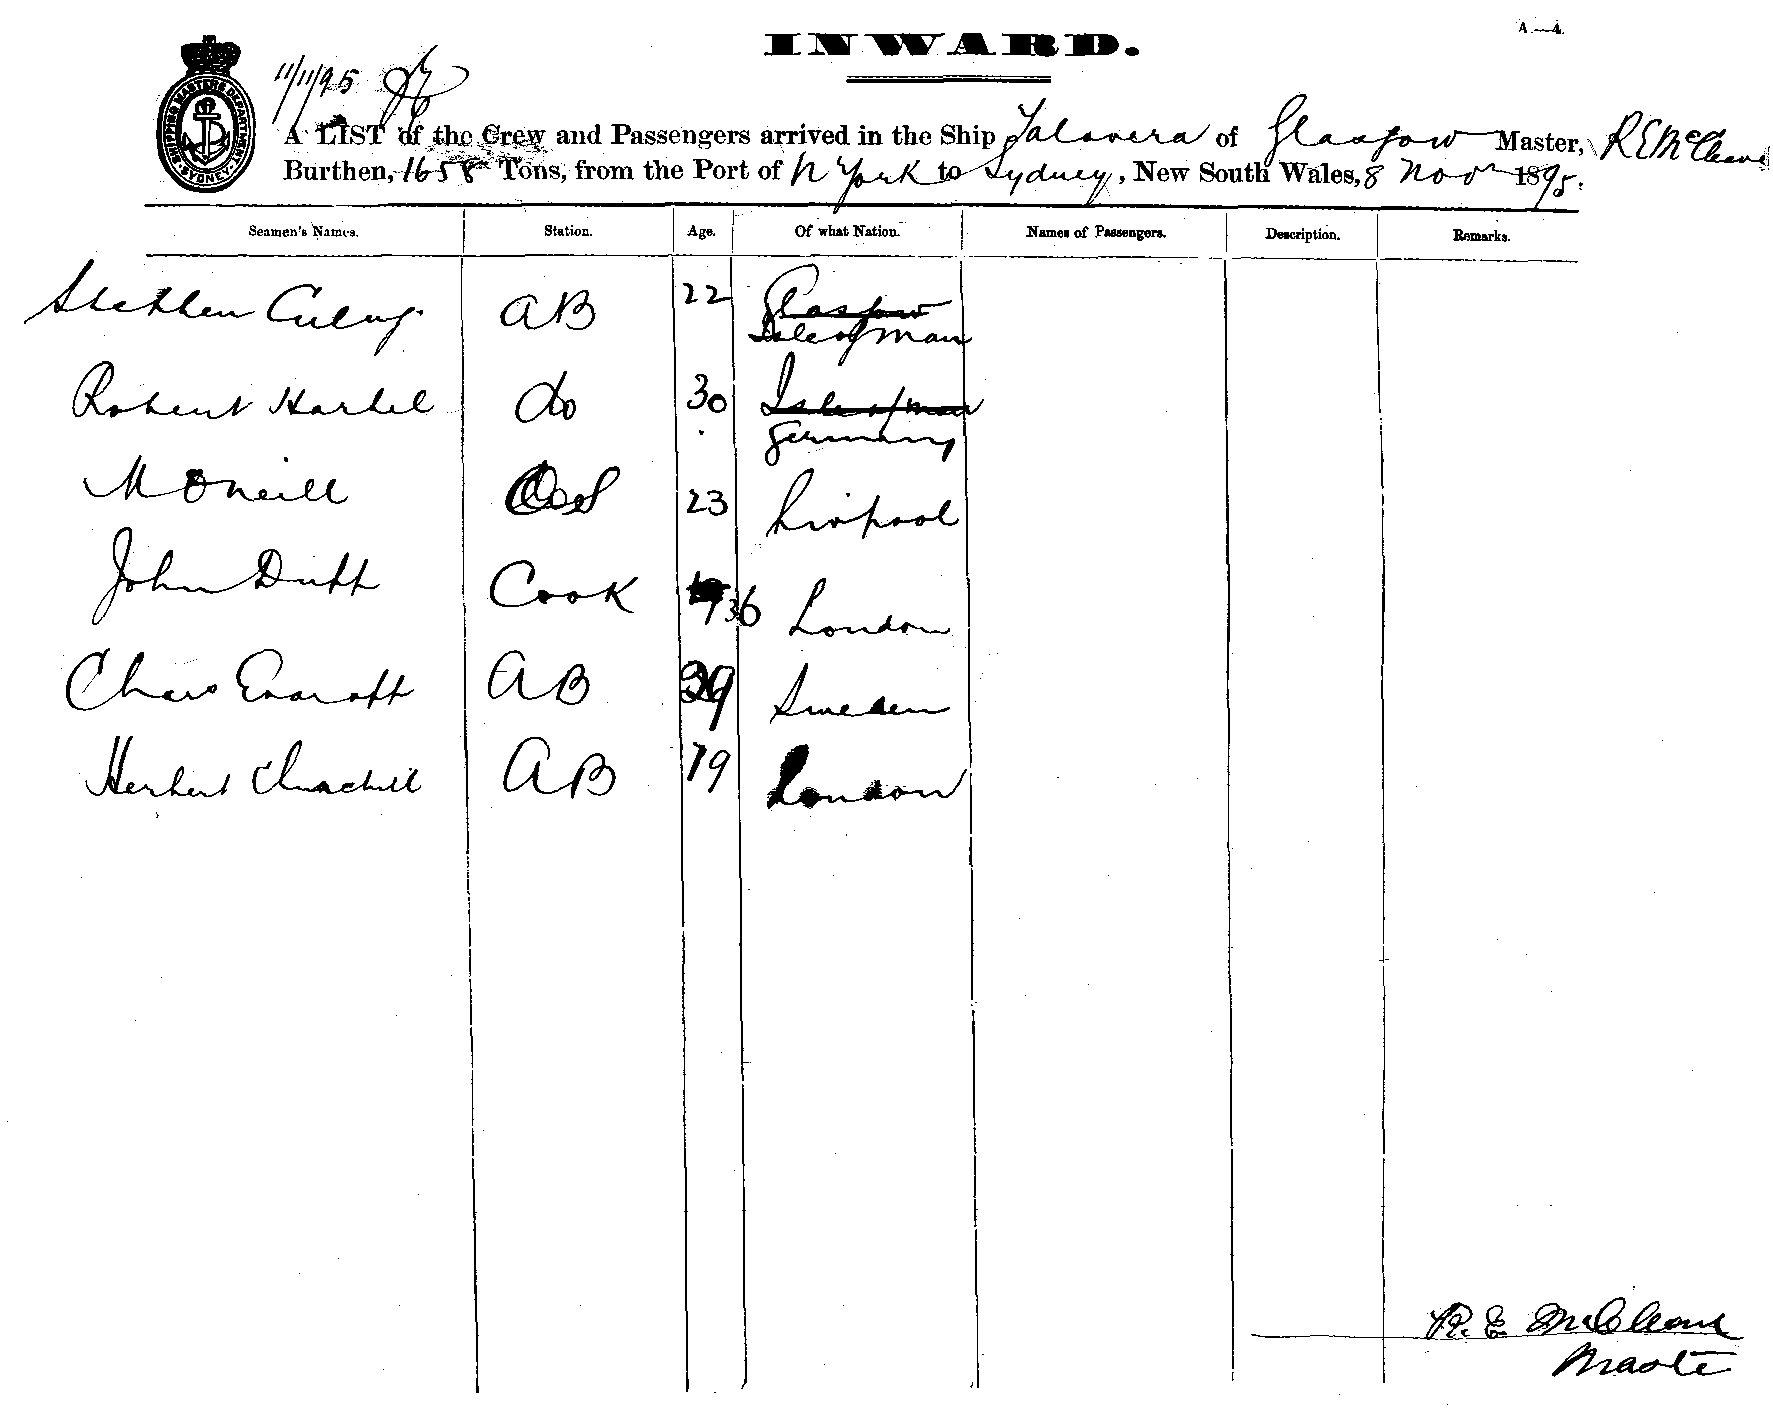 A.—4.
INWARD.
11/11/95
SHIPPING MASTERS DEPARTMENT SYDNEY
A LIST of the Crew and Passengers arrived in the Ship Talavera of Glasgow Master, R E McCleave
Burthen, 1658 Tons, from the Port of N York to Sydney, New South Wales, 8 Nov 1895.
Seamen's Names. Station. Age. Of what Nation. Names of Passengers. Description. Remarks.
Stephen AB 22 Glasgow
Isle of Man
Robert Hartel do 30 Isle of Man
Germany
M ONeill 23 Livpool
John Duff Cook 36 London
Chas AB 29 Sweden
Herbert Churchill AB 19 London
R. E McCleave
Master